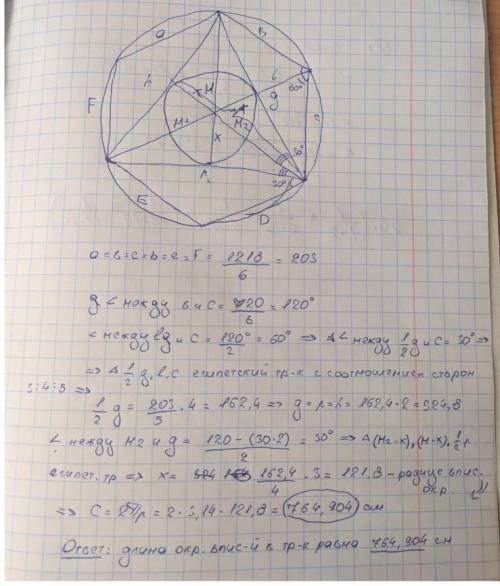 a
в
F
h
H
l
g
60°
c
x
H1
H2
x
30°
30°
E
D
a = в = c = b = e = F = 1218/6 = 203
g ∠ между в и c = 720/6 = 120°
∠ между lg и c = 120°/2 = 60° ⇒ Δ∠ между 1/2 g и c = 30° ⇒
⇒ Δ 1/2 g, l, c египетский тр-к с соотношением сторон
3:4:5 ⇒
1/2 g = 203/5 · 4 = 162,4 ⇒ g = p = h = 162,4 · 2 = 324,8
∠ между H2 и g = 120 - (30·2)/2 = 30° ⇒ Δ (H2-x), (H-x), 1/2 p
египет. тр ⇒ x = 162,4/4 · 3 = 121,8 - радиус впис. окр.
⇒ C = 2πр = 2 · 3,14 · 121,8 = 764,904 см
Ответ: длина окр. впис-й в тр-к равна 764,904 см